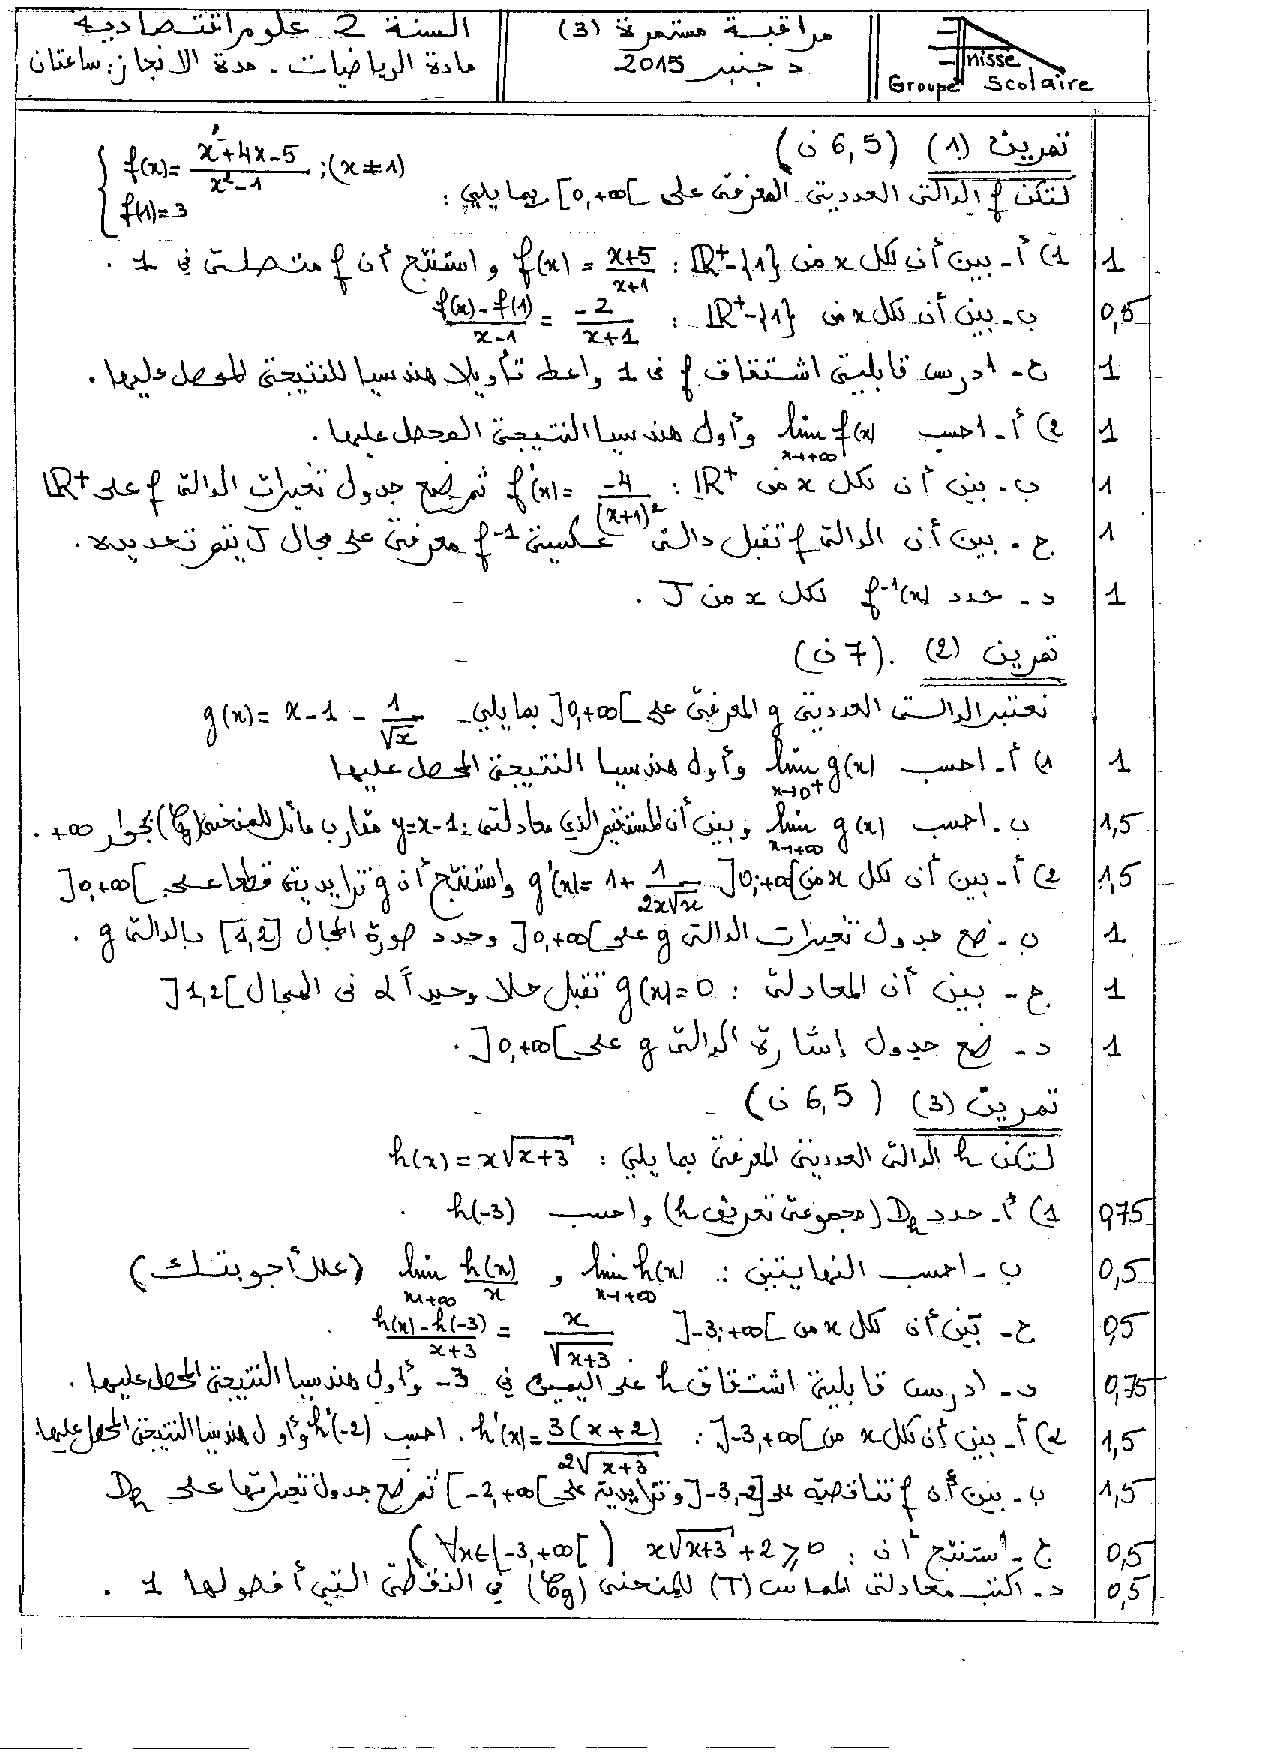 السنة 2 علوم اقتصادية
مادة الرياضيات. مدة الانجاز: ساعتان
مراقبة مستمرة (3)
دجنبر 2015
Anisse
Groupe Scolaire
تمرين (1) (6,5 ن)
لتكن f الدالة العددية المعرفة على [0,+∞[ بما يلي : { f(x) = (x²+4x-5)/(x²-1) ; (x≠1)
f(1)=3
1) أ- بين أن لكل x من ℝ⁺-{1} : f(x) = (x+5)/(x+1) واستنتج أن f متصلة في 1 . 1
ب- بين أن لكل x من ℝ⁺-{1} : (f(x)-f(1))/(x-1) = -2/(x+1) 0,5
ج- ادرس قابلية اشتقاق f في 1 واعط تأويلا هندسيا للنتيجة المحصل عليها. 1
2) أ- احسب lim f(x) x→+∞ وأول هندسيا النتيجة المحصل عليها. 1
ب- بين أن لكل x من ℝ⁺ : f'(x) = -4/(x+1)² ثم ضع جدول تغيرات الدالة f على ℝ⁺ 1
ج- بين أن الدالة f تقبل دالة عكسية f⁻¹ معرفة على مجال J يتم تحديده. 1
د- حدد f⁻¹(x) لكل x من J . 1
تمرين (2) . (7 ن)
نعتبر الدالة العددية g المعرفة على ]0,+∞[ بما يلي g(x) = x-1-1/√x
1) أ- احسب lim g(x) x→0⁺ وأول هندسيا النتيجة المحصل عليها 1
ب- احسب lim g(x) x→+∞ وبين أن المستقيم الذي معادلته : y=x-1 مقارب مائل للمنحنى (Cg) بجوار +∞ . 1,5
2) أ- بين أن لكل x من ]0;+∞[ g'(x) = 1+1/(2x√x) واستنتج أن g تزايدية قطعا على ]0,+∞[ 1,5
ب- ضع جدول تغيرات الدالة g على ]0,+∞[ وحدد صورة المجال [1,2] بالدالة g . 1
ج- بين أن المعادلة : g(x)=0 تقبل حلا وحيدا α في المجال ]1,2[ 1
د- ضع جدول إشارة الدالة g على ]0,+∞[ . 1
تمرين (3) (6,5 ن)
لتكن h الدالة العددية المعرفة بما يلي : h(x) = x√(x+3)
1) أ- حدد Dh (مجموعة تعريف h) واحسب h(-3) . 0,75
ب- احسب النهايتين : lim h(x) x→+∞ , lim h(x)/x x→+∞ (علل أجوبتك) 0,5
ج- بين أن لكل x من ]-3;+∞[ (h(x)-h(-3))/(x+3) = x/√(x+3) . 0,5
د- ادرس قابلية اشتقاق h على اليمين في -3 وأول هندسيا النتيجة المحصل عليها. 0,75
2) أ- بين أن لكل x من ]-3,+∞[ : h'(x) = 3(x+2)/(2√(x+3)) . احسب h'(-2) وأول هندسيا النتيجة المحصل عليها 1,5
ب- بين أن f تناقصية على ]-3,-2] وتزايدية على [-2,+∞[ ثم ضع جدول تغيراتها على Dh 1,5
ج- استنتج أن : x√(x+3)+2 ⩾ 0 (∀x∈[-3,+∞[) 0,5
د- اكتب معادلة المماس (T) للمنحنى (Cg) في النقطة التي أفصولها 1 . 0,5